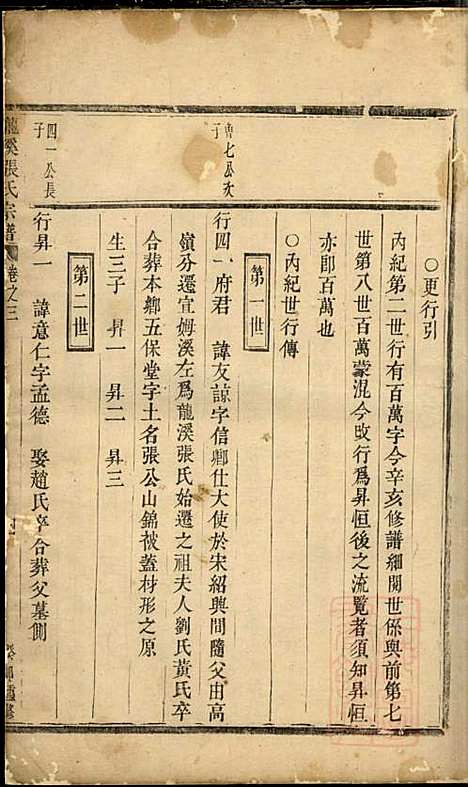 ○更行引
內紀第二世行有百萬字今辛亥修譜細閱世係與前第七
世第八世百萬蒙混今改行爲昇恒後之流覽者須知昇恒
亦卽百萬也
○內紀世行傳
第一世
曹七公次
子
行四一府君 諱友諒字信卿仕大使於宋紹興間隨父由高
嶺分遷宜姆溪左爲龍溪張氏始遷之祖夫人劉氏黃氏卒
合葬本鄉五保堂字土名張公山錦被蓋材形之原
生三子 昇一 昇二 昇三
第二世
四一公長
子
行昇一 諱意仁字孟德 娶趙氏卒合葬父墓側
龍溪張氏宗譜 卷之三